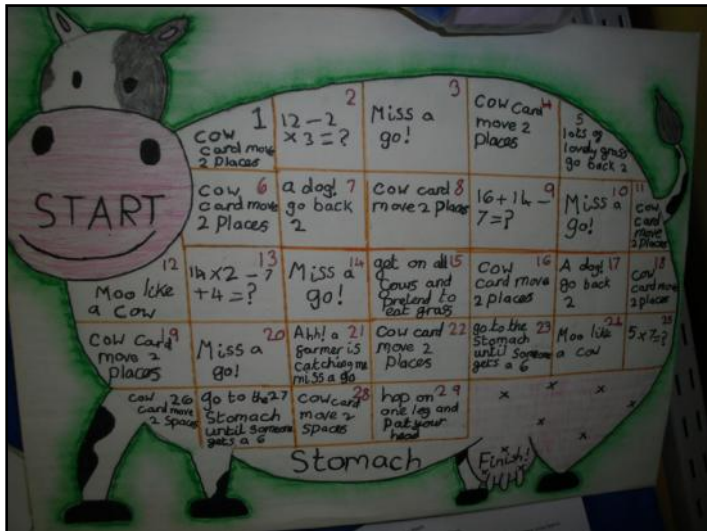 START
1
COW
card move
2 Places
2
12 - 2
x 3 = ?
3
Miss a
go!
4
COW Card
move 2
Places
5
lots of
lovely grass
go back 2
6
COW
card move
2 Places
7
a dog!
go back
2
8
COW card
move 2 Places
9
16 + 14 -
7 = ?
10
Miss a
go!
11
COW
card
move
2 places
12
Moo like
a cow
13
14 x 2 - 7
+ 4 = ?
14
Miss a
go!
15
get on all
cows and
pretend to
eat grass
16
COW
card move
2 places
17
A dog!
go back
2
18
COW
card move
2 places
19
COW Card
move 2
Places
20
Miss a
go!
21
Ahh! a
farmer is
catching me
miss a go
22
COW card
move 2
Places
23
go to the
Stomach
until someone
gets a 6
24
Moo like
a cow
25
5 x 7 = ?
26
COW
card move
2 Spaces
27
go to the
Stomach
until someone
gets a 6
28
COW card
move 2
spaces
29
hop on
one leg and
pat your
head
Stomach
Finish!